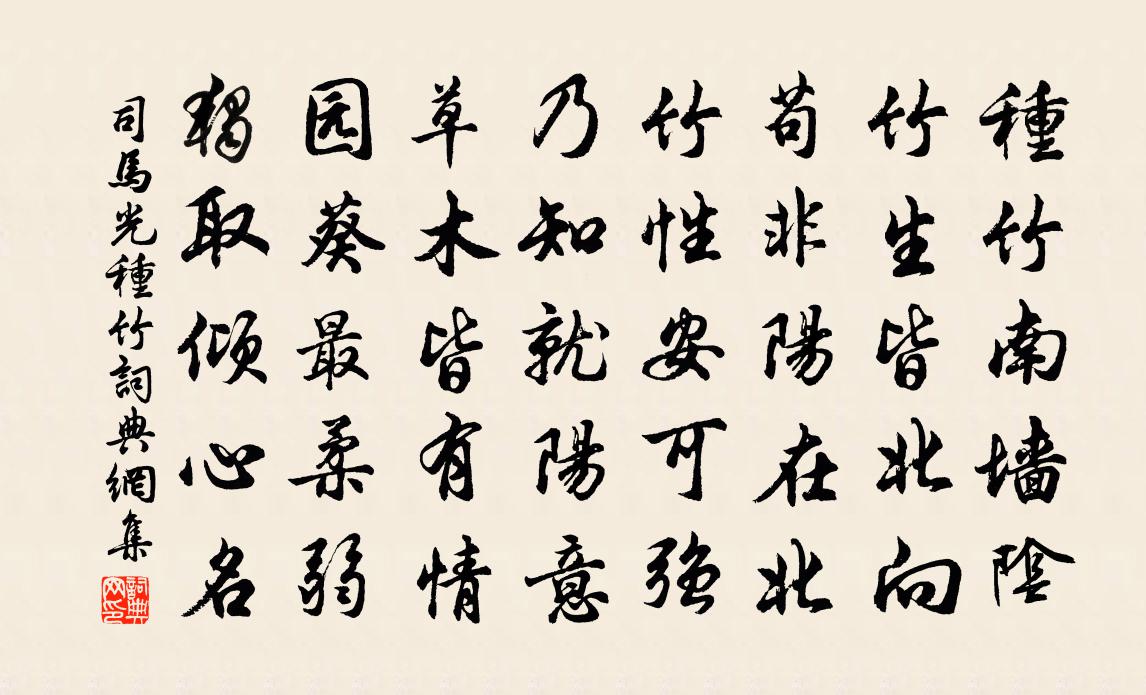 種竹南墙陰
竹生皆北向
苟非陽在北
竹性安可強
乃知就陽意
草木皆有情
园葵最柔弱
独取倾心名
司馬光種竹詞典網集
詞典網印